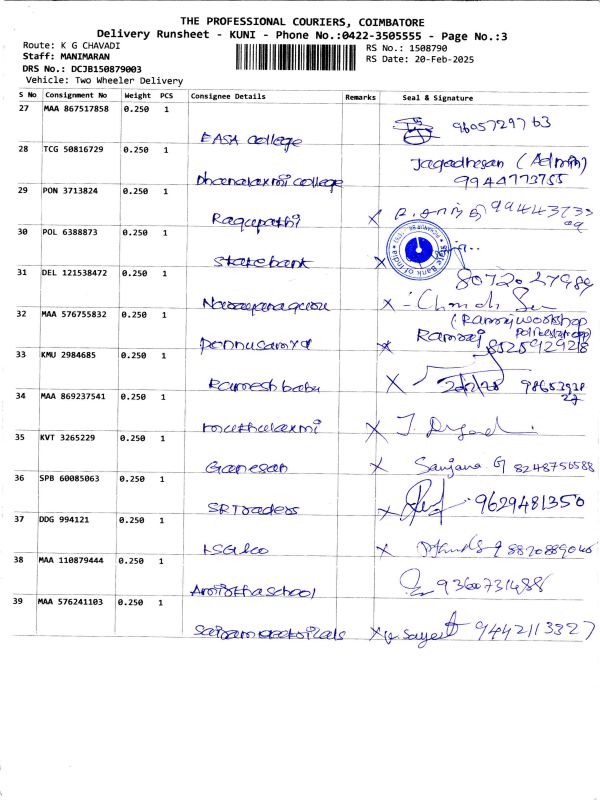 THE PROFESSIONAL COURIERS, COIMBATORE
Delivery Runsheet - KUNI - Phone No.:0422-3505555 - Page No.:3
Route: K G CHAVADI
RS No.: 1508790
Staff: MANIMARAN
RS Date: 20-Feb-2025
DRS No.: DCJB150879003
Vehicle: Two Wheeler Delivery
S No Consignment No Weight PCS Consignee Details Remarks Seal & Signature
27 MAA 867517858 0.250 1
EASA college 9605729763
28 TCG 50816729 0.250 1
Jagadhesan (Admin)
Dhanalaxmi college 9944773755
29 PON 3713824 0.250 1
Ragupathi X
30 POL 6388873 0.250 1
State bank X State Bank of India
31 DEL 121538472 0.250 1
8072027989
X
32 MAA 576755832 0.250 1
(Ramraj workshop
Ponnusamy X Ramraj 8525929218
33 KMU 2984685 0.250 1
Ramesh babu X
34 MAA 869237541 0.250 1
muthulaxmi X
35 KVT 3265229 0.250 1
Ganesan X Sanjana G 8248756588
36 SPB 60085063 0.250 1
SR Traders X 9629481350
37 DDG 994121 0.250 1
X
38 MAA 110879444 0.250 1
Amirtha school
39 MAA 576241103 0.250 1
X 9442113327